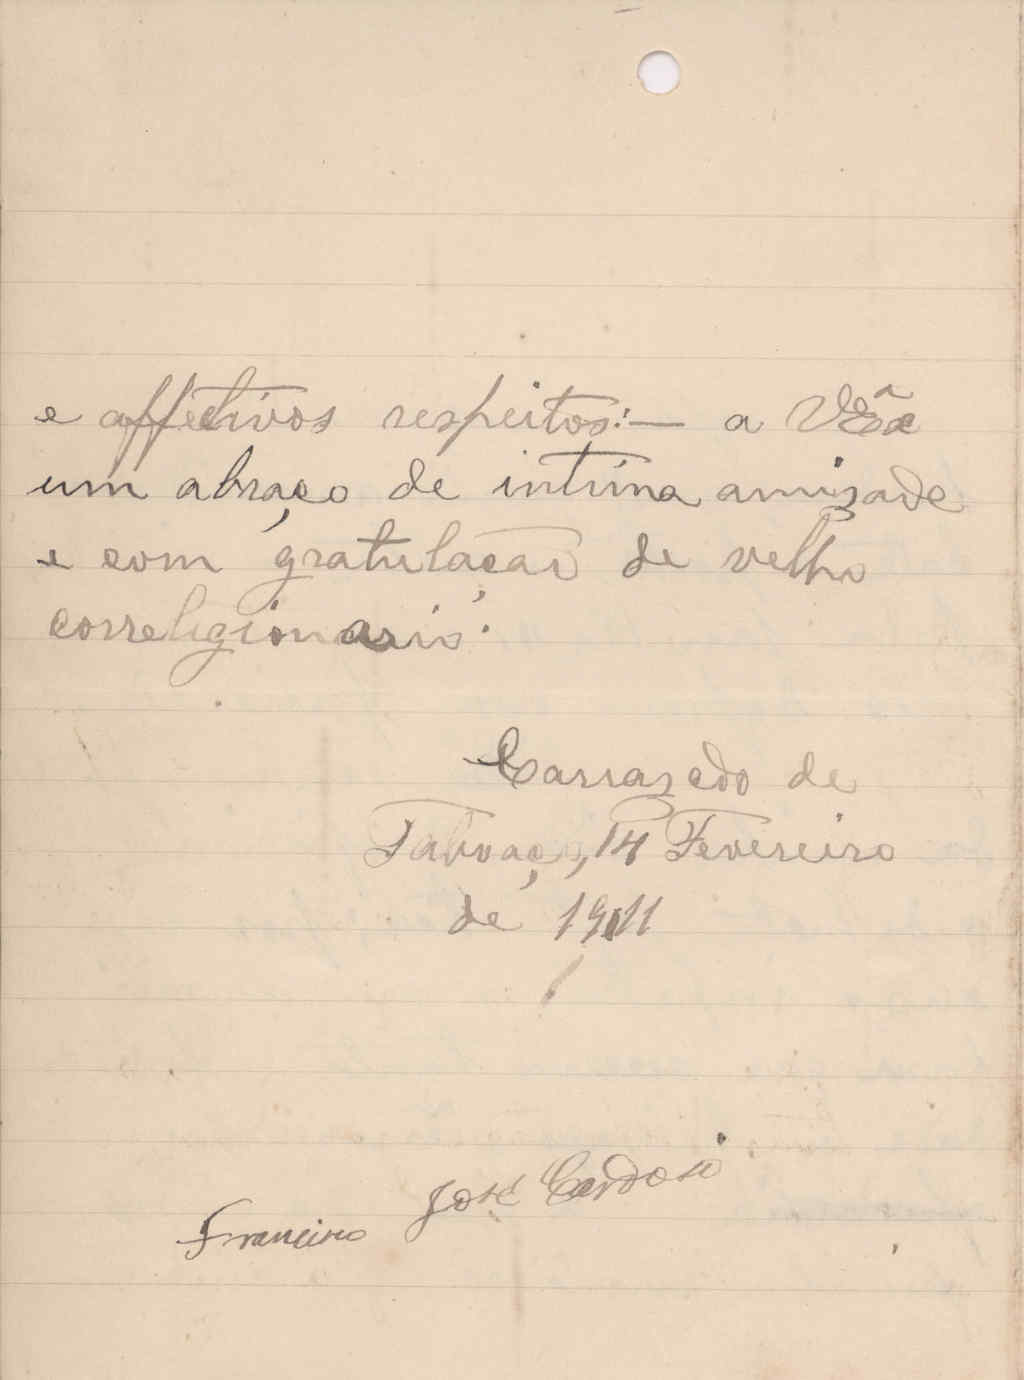 e affectivos respeitos:— a VExª
um abraço de intima amizade
e com gratulação de velho
correligionario.
Carrazedo de
Taboaço, 14 Fevereiro
de 1911
Francisco José Cardoso